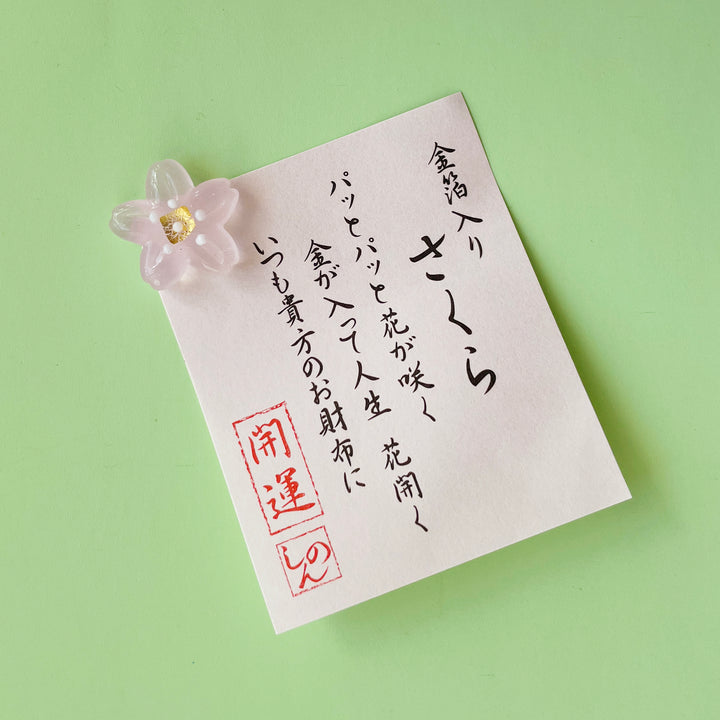 金箔入り
さくら
パッとパッと花が咲く
金が入って人生 花開く
いつも貴方のお財布に
開運
しのん